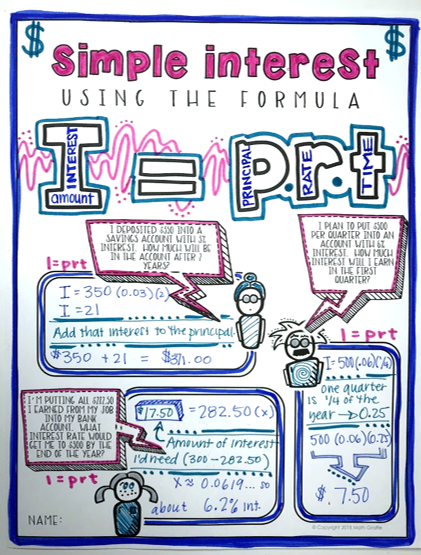 $ simple interest $
USING THE FORMULA
I = p.r.t
INTEREST
amount
PRINCIPAL
RATE
TIME
I DEPOSITED $350 INTO A
SAVINGS ACCOUNT WITH 3%
INTEREST. HOW MUCH WILL BE
IN THE ACCOUNT AFTER 2
YEARS?
I=prt
I = 350 (0.03)(2)
I = 21
Add that interest to the principal.
$350 + 21 = $371.00
I PLAN TO PUT $500
PER QUARTER INTO AN
ACCOUNT WITH 6%
INTEREST. HOW MUCH
INTEREST WILL I EARN
IN THE FIRST
QUARTER?
I = prt
I=500(.06)(1/4)
one quarter
is 1/4 of the
year → 0.25
500 (0.06)(0.25)
$7.50
I'M PUTTING ALL $282.50
I EARNED FROM MY JOB
INTO MY BANK
ACCOUNT. WHAT
INTEREST RATE WOULD
GET ME TO $300 BY THE
END OF THE YEAR?
I = prt
$17.50 = 282.50 (x)
Amount of interest
I'd need (300-282.50)
x ≈ 0.0619... so
about 6.2% int.
NAME:
© Copyright 2016 Math Giraffe